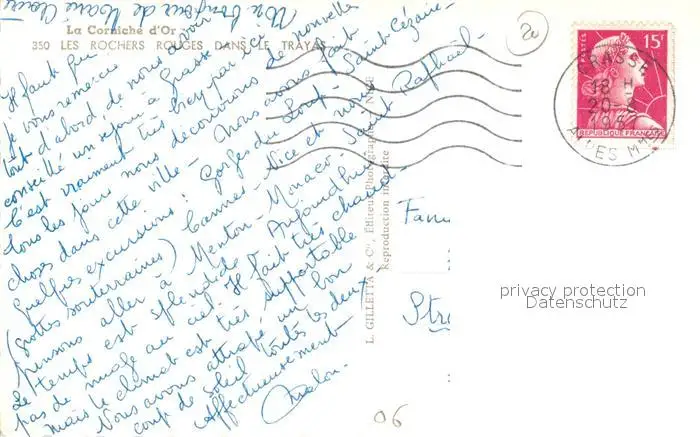 La Corniche d'Or
350 LES ROCHERS ROUGES DANS LE TRAYAS
Il faut que
Je vous remercie
tout d'abord, de nous avoir
conseillé un séjour à Grasse
C'est vraiment très bien par ici
tous les jours nous découvrons de nouvelles
choses dans cette ville - Nous avons fait
quelques excursions: Gorges du Loup - Saint-Cézaire
(grottes souterraines) Cannes - Nice et nous
pensons aller à Menton - Monaco - Saint Raphaël -
Le temps est splendide. Aujourd'hui
pas de nuage au ciel. Il fait très chaud
mais le climat est très supportable
Nous avons attrapé un bon
coup de soleil toutes les deux
Affectueusement
L. GILLETTA & Cie, Éditeur-Photographe, NICE
Reproduction interdite
POSTES
15F
REPUBLIQUE FRANÇAISE
GRASSE
18 H
20 - 8
195
ALPES MMES
2
Fam
Str
privacy protection
Datenschutz
06